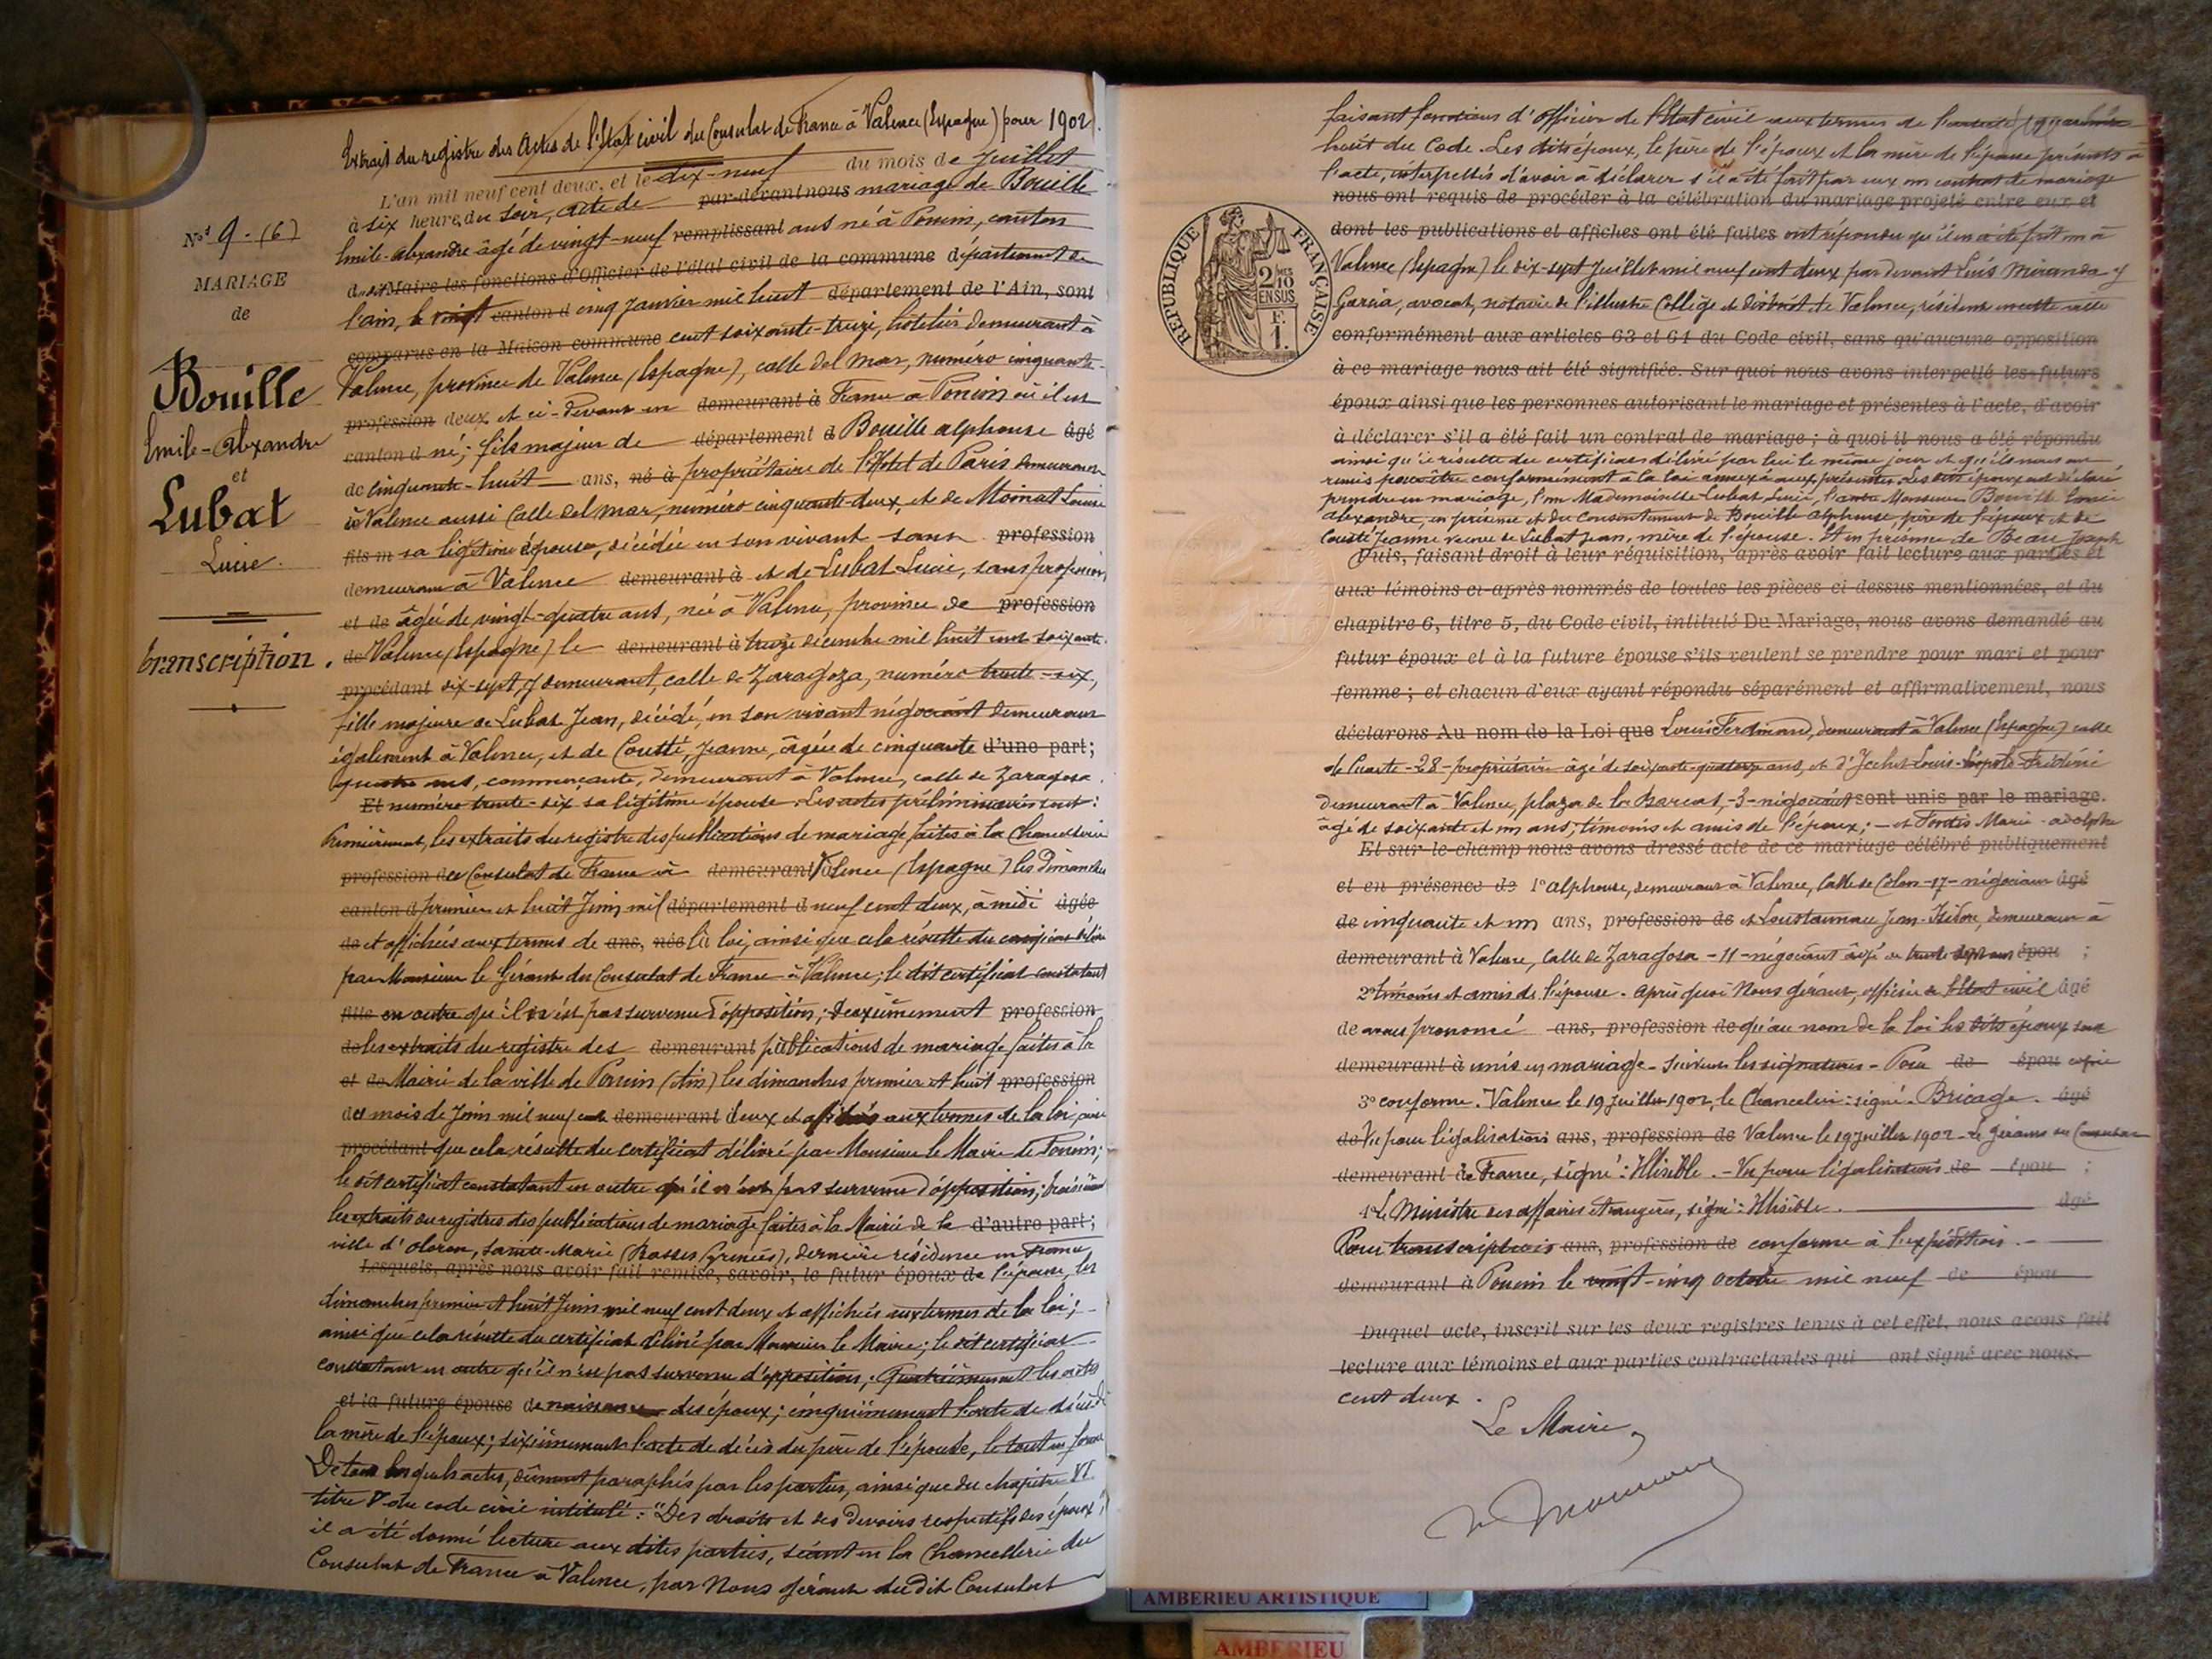 Extrait du registre des Actes de l'Etat civil du Consulat de France à Valence (Espagne) pour 1902.
L'an mil neuf cent deux, et le dix-neuf du mois de Juillet
à six heures du soir, acte de par-devant nous mariage de Bouille
Emile-Alexandre âgé de vingt-neuf remplissant ans né à Poncin, canton
dudit Maire les fonctions d'Officier de l'état civil de la commune département de
l'ain, le vingt canton d cinq Janvier mil huit département de l'Ain, sont
comparus en la Maison commune cent soixante-treize, hôtelier demeurant à
Valence, province de Valence (Espagne), calle del mar, numéro cinquante-
profession deux et ci-devant en demeurant à France à Poncin où il est
canton d né; fils majeur de département d Bouille alphonse âgé
de cinquante-huit ans, né à propriétaire de l'Hotel de Paris demeurant
à Valence aussi Calle del mar, numéro cinquante-deux, et de Moinat Louise
fils m sa légitime épouse, décédée en son vivant sans profession
demeurant à Valence demeurant à et de Lubat Lucie, sans profession
et de âgée de vingt-quatre ans, née à Valence, province de profession
de Valence (Espagne) le demeurant à treize décembre mil huit cent soixante
procédant dix-sept, y demeurant, calle de Zaragoza, numéro trente-six,
fille majeure de Lubat Jean, décédé, en son vivant négociant demeurant
également à Valence, et de Cousté, Jeanne, âgée de cinquante d'une part;
quatre ans, commerçante, demeurant à Valence, calle de Zaragoza
Et numéro trente-six sa légitime épouse. Les actes préliminaires sont:
Premièrement, les extraits du registre des publications de mariage faites à la Chancellerie
profession du Consulat de France à demeurant Valence (Espagne) les dimanches
canton d premier et huit Juin mil département d neuf cent deux, à midi âgée
de et affichées aux termes de ans, née la loi, ainsi que cela résulte du certificat délivré
par Monsieur le Gérant du Consulat de France à Valence; le dit certificat constatant
fille en outre qu'il n'est pas survenu d'opposition; deuxièmement profession
de les extraits du registre des demeurant publications de mariage faites à la
et de Mairie de la ville de Poncin (Ain) les dimanches premier et huit profession
du mois de Juin mil neuf cent demeurant deux et affichés aux termes de la loi, ainsi
procédant que cela résulte du certificat délivré par Monsieur le Maire de Poncin;
le dit certificat constatant en outre qu'il n'est pas survenu d'opposition; troisièment
les extraits du registres des publications de mariage faites à la Mairie de la d'autre part;
ville d'Oloron, Sainte-Marie (Basses Pyrénées), dernière résidence en France
Lesquels, après nous avoir fait remise, savoir, le futur époux de l'épouse, les
dimanches premier et huit Juin mil neuf cent deux et affichées aux termes de la loi;
ainsi que cela résulte du certificat délivré par Monsieur le Maire; le dit certificat
constatant en outre qu'il n'est pas survenu d'opposition; Quatrièmement les actes
et la future épouse de naissance des époux; cinquièmement l'acte de décès de
la mère de l'époux; sixièmement l'acte de décès du père de l'épouse, le tout en forme
De tous lesquels actes, dûment paraphés par les parties, ainsi que du chapitre VI
titre V du code civil intitulé: "Des droits et des devoirs respectifs des époux",
il a été donné lecture aux dites parties, séant en la Chancellerie du
Consulat de France à Valence, par Nous gérant du dit Consulat
Nos 9. (6)
MARIAGE
de
Bouille
Emile-Alexandre
et
Lubat
Lucie.
transcription.
faisant fonctions d'Officier de l'Etat civil aux termes de l'article quarante
huit du Code. Les dits époux, le père de l'époux et la mère de l'épouse présents à
l'acte, interpellés d'avoir à déclarer s'il a été fait par eux un contrat de mariage
nous ont requis de procéder à la célébration du mariage projeté entre eux et
dont les publications et affiches ont été faites ont répondu qu'il en a été fait un à
Valence (Espagne) le dix-sept Juillet mil neuf cent deux par devant Luis Miranda y
Garcia, avocat, notaire de l'illustre Collège et district de Valence, résident en cette ville
conformément aux articles 63 et 64 du Code civil, sans qu'aucune opposition
à ce mariage nous ait été signifiée. Sur quoi nous avons interpellé les futurs
époux ainsi que les personnes autorisant le mariage et présentes à l'acte, d'avoir
à déclarer s'il a été fait un contrat de mariage; à quoi il nous a été répondu
ainsi qu'il résulte du certificat délivré par lui le même jour et qu'ils nous ont
remis pour être conformément à la loi annexé aux présentes. Les dits époux ont déclaré
prendre en mariage, l'un Mademoiselle Lubat Lucie, l'autre Monsieur Bouille Emile
Alexandre, en présence et du consentement de Bouille Alphonse, père de l'époux et de
Cousté Jeanne veuve de Lubat Jean, mère de l'épouse. Et en présence de Beau Joseph
Puis, faisant droit à leur réquisition, après avoir fait lecture aux parties et
aux témoins ci-après nommés de toutes les pièces ci-dessus mentionnées, et du
chapitre 6, titre 5, du Code civil, intitulé Du Mariage, nous avons demandé au
futur époux et à la future épouse s'ils veulent se prendre pour mari et pour
femme; et chacun d'eux ayant répondu séparément et affirmativement, nous
déclarons Au nom de la Loi que Louis Ferdinand, demeurant à Valence (Espagne) calle
de Cuarte-28-propriétaire âgé de soixante-quatorze ans, et d' Louis-Léopold Frédéric
demeurant à Valence, plaza de las Barcas,-3-négociant sont unis par le mariage.
âgé de soixante et un ans; témoins et amis de l'époux; - et Marie-adolphe
Et sur-le-champ nous avons dressé acte de ce mariage célébré publiquement
et en présence de 1° alphonse, demeurant à Valence, Calle de Colon-17-négociant âgé
de cinquante et un ans, profession de et Loustaunau Jean-Isidore, demeurant à
demeurant à Valence, Calle de Zaragosa-11-négociant âgé de trente sept ans épou ;
2° témoins et amis de l'épouse. Après quoi Nous gérant, officier de l'Etat civil âgé
de avons prononcé ans, profession de qu'au nom de la loi les dits époux sont
demeurant à unis en mariage. Suivent les signatures - Pour de épou copie
3° conforme. Valence le 19 Juillet 1902, le Chancelier: signé. Bricage. âgé
de Vu pour légalisation ans, profession de Valence le 19 juillet 1902-Le gérant du Consulat
demeurant à de France, signé: Illisible. - Vu pour légalisation de épou ;
4° Le Ministre des affaires étrangères, signé: Illisible. âgé
Pour transcription ans, profession de conforme à l'expédition.
demeurant à Poncin le vingt-cinq octobre mil neuf de épou
Duquel acte, inscrit sur les deux registres tenus à cet effet, nous avons fait
lecture aux témoins et aux parties contractantes qui ont signé avec nous.
cent deux.
Le Maire,
REPUBLIQUE FRANÇAISE
2/10
EN SUS
F.
1.
AMBERIEU ARTISTIQUE
AMBERIEU